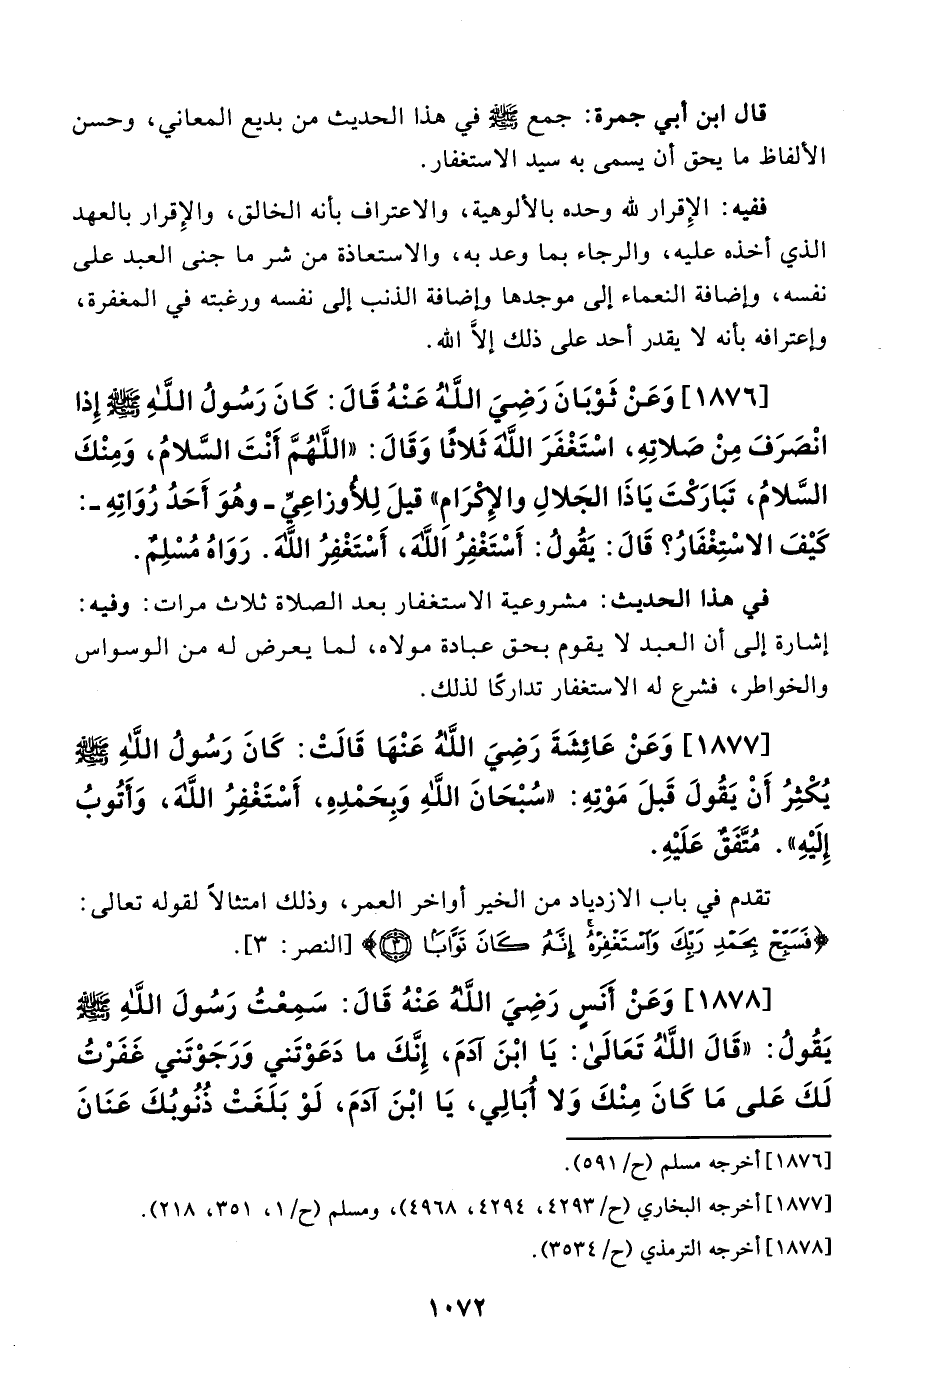 قال ابن أبي جمرة: جمع ﷺ في هذا الحديث من بديع المعاني، وحسن
الألفاظ ما يحق أن يسمى به سيد الاستغفار.
ففيه: الإقرار لله وحده بالألوهية، والاعتراف بأنه الخالق، والإقرار بالعهد
الذي أخذه عليه، والرجاء بما وعد به، والاستعاذة من شر ما جنى العبد على
نفسه، وإضافة النعماء إلى موجدها وإضافة الذنب إلى نفسه ورغبته في المغفرة،
وإعترافه بأنه لا يقدر أحد على ذلك إلاَّ الله.
[١٨٧٦] وَعَنْ ثَوْبَانَ رَضِيَ اللَّهُ عَنْهُ قَالَ: كَانَ رَسُولُ اللَّهِ ﷺ إِذا
انْصَرَفَ مِنْ صَلاتِهِ، اسْتَغْفَرَ اللَّهَ ثَلاثًا وَقَالَ: «اللَّهُمَّ أَنْتَ السَّلامُ، وَمِنْكَ
السَّلامُ، تَبَارَكْتَ يَاذَا الجَلالِ والإِكْرَامِ» قيلَ لِلأُوزاعِيِّ ـ وهُوَ أَحَدُ رُوَاتِهِ ـ:
كَيْفَ الاسْتِغْفَارُ؟ قَالَ: يَقُولُ: أَسْتَغْفِرُ اللَّهَ، أَسْتَغْفِرُ اللَّهَ. رَوَاهُ مُسْلِمٌ.
في هذا الحديث: مشروعية الاستغفار بعد الصلاة ثلاث مرات: وفيه:
إشارة إلى أن العبد لا يقوم بحق عبادة مولاه، لما يعرض له من الوسواس
والخواطر، فشرع له الاستغفار تداركًا لذلك.
[١٨٧٧] وَعَنْ عَائِشَةَ رَضِيَ اللَّهُ عَنْهَا قَالَتْ: كَانَ رَسُولُ اللَّهِ ﷺ
يُكْثِرُ أَنْ يَقُولَ قَبلَ مَوْتِهِ: «سُبْحَانَ اللَّهِ وَبِحَمْدِهِ، أَسْتَغْفِرُ اللَّهَ، وَأَتُوبُ
إِلَيْهِ». مُتَّفَقٌ عَلَيْهِ.
تقدم في باب الازدياد من الخير أواخر العمر، وذلك امتثالاً لقوله تعالى:
﴿فَسَبِّحْ بِحَمْدِ رَبِّكَ وَٱسْتَغْفِرْهُ ۚ إِنَّهُ كَانَ تَوَّابًا ۝٣﴾ [النصر: ٣].
[١٨٧٨] وَعَنْ أَنَسٍ رَضِيَ اللَّهُ عَنْهُ قَالَ: سَمِعْتُ رَسُولَ اللَّهِ ﷺ
يَقُولُ: «قَالَ اللَّهُ تَعَالَىٰ: يَا ابْنَ آدَمَ، إِنَّكَ ما دَعَوْتَني وَرَجَوْتَني غَفَرْتُ
لَكَ عَلى مَا كَانَ مِنْكَ وَلا أُبَالِي، يَا ابْنَ آدَمَ، لَوْ بَلَغَتْ ذُنُوبُكَ عَنَانَ
[١٨٧٦] أخرجه مسلم (ح/ ٥٩١).
[١٨٧٧] أخرجه البخاري (ح/ ٤٢٩٣، ٤٢٩٤، ٤٩٦٨)، ومسلم (ح/ ١، ٣٥١، ٢١٨).
[١٨٧٨] أخرجه الترمذي (ح/ ٣٥٣٤).
١٠٧٢